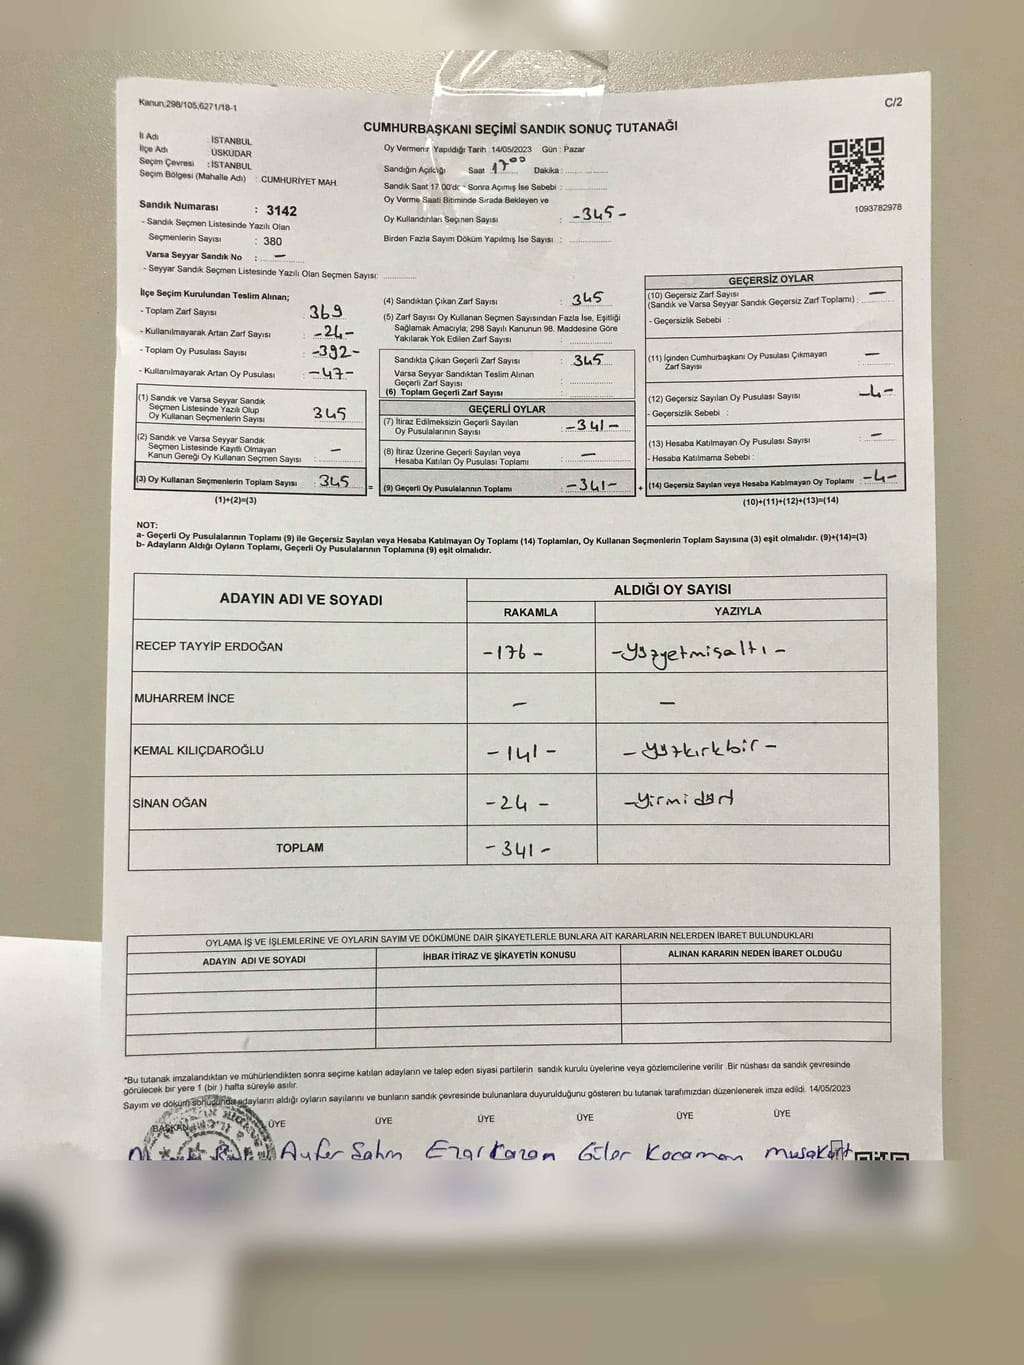 Kanun,298/105,6271/18-1
C/2
CUMHURBAŞKANI SEÇİMİ SANDIK SONUÇ TUTANAĞI
İl Adı : İSTANBUL
İlçe Adı : ÜSKÜDAR
Seçim Çevresi : İSTANBUL
Seçim Bölgesi (Mahalle Adı) : CUMHURİYET MAH.
Sandık Numarası : 3142
- Sandık Seçmen Listesinde Yazılı Olan
Seçmenlerin Sayısı : 380
Varsa Seyyar Sandık No : -
- Seyyar Sandık Seçmen Listesinde Yazılı Olan Seçmen Sayısı: ............
Oy Vermenin Yapıldığı Tarih :14/05/2023 Gün : Pazar
Sandığın Açılışı Saat 17 00 Dakika : ............
Sandık Saat 17.00'den Sonra Açılmış İse Sebebi : ............
Oy Verme Saati Bitiminde Sırada Bekleyen ve
Oy Kullandırılan Seçmen Sayısı : -345-
Birden Fazla Sayım Döküm Yapılmış İse Sayısı : ............
1093782978
İlçe Seçim Kurulundan Teslim Alınan;
- Toplam Zarf Sayısı : 369
- Kullanılmayarak Artan Zarf Sayısı : -24-
- Toplam Oy Pusulası Sayısı : -392-
- Kullanılmayarak Artan Oy Pusulası : -47-
(1) Sandık ve Varsa Seyyar Sandık
Seçmen Listesinde Yazılı Olup
Oy Kullanan Seçmenlerin Sayısı : 345
(2) Sandık ve Varsa Seyyar Sandık
Seçmen Listesinde Kayıtlı Olmayan
Kanun Gereği Oy Kullanan Seçmen Sayısı : -
(3) Oy Kullanan Seçmenlerin Toplam Sayısı : 345
(1)+(2)=(3)
=
(4) Sandıktan Çıkan Zarf Sayısı : 345
(5) Zarf Sayısı Oy Kullanan Seçmen Sayısından Fazla İse, Eşitliği
Sağlamak Amacıyla; 298 Sayılı Kanunun 98. Maddesine Göre
Yakılarak Yok Edilen Zarf Sayısı : ............
Sandıkta Çıkan Geçerli Zarf Sayısı : 345
Varsa Seyyar Sandıktan Teslim Alınan
Geçerli Zarf Sayısı : ............
(6) Toplam Geçerli Zarf Sayısı : ............
GEÇERLİ OYLAR
(7) İtiraz Edilmeksizin Geçerli Sayılan
Oy Pusulalarının Sayısı : -341-
(8) İtiraz Üzerine Geçerli Sayılan veya
Hesaba Katılan Oy Pusulası Toplamı : -
(9) Geçerli Oy Pusulalarının Toplamı : -341-
+
GEÇERSİZ OYLAR
(10) Geçersiz Zarf Sayısı
(Sandık ve Varsa Seyyar Sandık Geçersiz Zarf Toplamı) : -
- Geçersizlik Sebebi :
(11) İçinden Cumhurbaşkanı Oy Pusulası Çıkmayan
Zarf Sayısı : -
(12) Geçersiz Sayılan Oy Pusulası Sayısı : -4-
- Geçersizlik Sebebi :
(13) Hesaba Katılmayan Oy Pusulası Sayısı : -
- Hesaba Katılmama Sebebi :
(14) Geçersiz Sayılan veya Hesaba Katılmayan Oy Toplamı : -4-
(10)+(11)+(12)+(13)=(14)
NOT:
a- Geçerli Oy Pusulalarının Toplamı (9) ile Geçersiz Sayılan veya Hesaba Katılmayan Oy Toplamı (14) Toplamları, Oy Kullanan Seçmenlerin Toplam Sayısına (3) eşit olmalıdır. (9)+(14)=(3)
b- Adayların Aldığı Oyların Toplamı, Geçerli Oy Pusulalarının Toplamına (9) eşit olmalıdır.
ADAYIN ADI VE SOYADI
ALDIĞI OY SAYISI
RAKAMLA YAZIYLA
RECEP TAYYİP ERDOĞAN -176- -yüzyetmişaltı-
MUHARREM İNCE - -
KEMAL KILIÇDAROĞLU -141- -yüzkırkbir-
SİNAN OĞAN -24- -yirmidört
TOPLAM -341-
OYLAMA İŞ VE İŞLEMLERİNE VE OYLARIN SAYIM VE DÖKÜMÜNE DAİR ŞİKAYETLERLE BUNLARA AİT KARARLARIN NELERDEN İBARET BULUNDUKLARI
ADAYIN ADI VE SOYADI İHBAR İTİRAZ VE ŞİKAYETİN KONUSU ALINAN KARARIN NEDEN İBARET OLDUĞU
*Bu tutanak imzalandıktan ve mühürlendikten sonra seçime katılan adayların ve talep eden siyasi partilerin sandık kurulu üyelerine veya gözlemcilerine verilir .Bir nüshası da sandık çevresinde
görülecek bir yere 1 (bir ) hafta süreyle asılır.
Sayım ve döküm sonucunda adayların aldığı oyların sayılarını ve bunların sandık çevresinde bulunanlara duyurulduğunu gösteren bu tutanak tarafımızdan düzenlenerek imza edildi. 14/05/2023
BAŞKAN ÜYE ÜYE ÜYE ÜYE ÜYE ÜYE
Ayfer Şahin Ezgi Kazan Güler Kocaman Musa Kurt